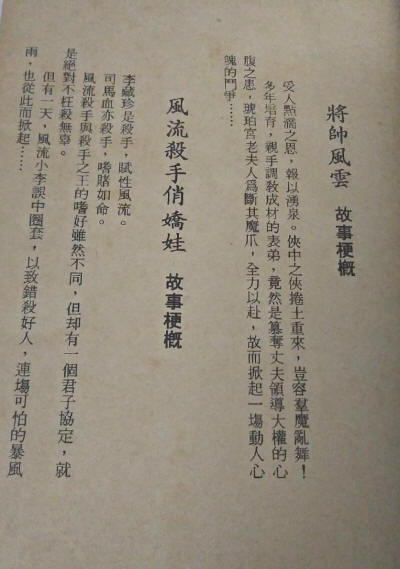 將帥風雲 故事梗概
受人點滴之恩，報以湧泉。俠中之俠捲土重來，豈容羣魔亂舞！
多年培育，親手調敎成材的表弟，竟然是篡奪丈夫領導大權的心
腹之患，琥珀宮老夫人爲斷其魔爪，全力以赴，故而掀起一場動人心
魄的鬥爭……
風流殺手俏嬌娃 故事梗概
李藏珍是殺手，賦性風流。
司馬血亦殺手，嗜賭如命。
風流殺手與殺手之王的嗜好雖然不同，但却有一個君子協定，就
是絕對不枉殺無辜。
但有一天，風流小李誤中圈套，以致錯殺好人，連塲可怕的暴風
雨，也從此而掀起……